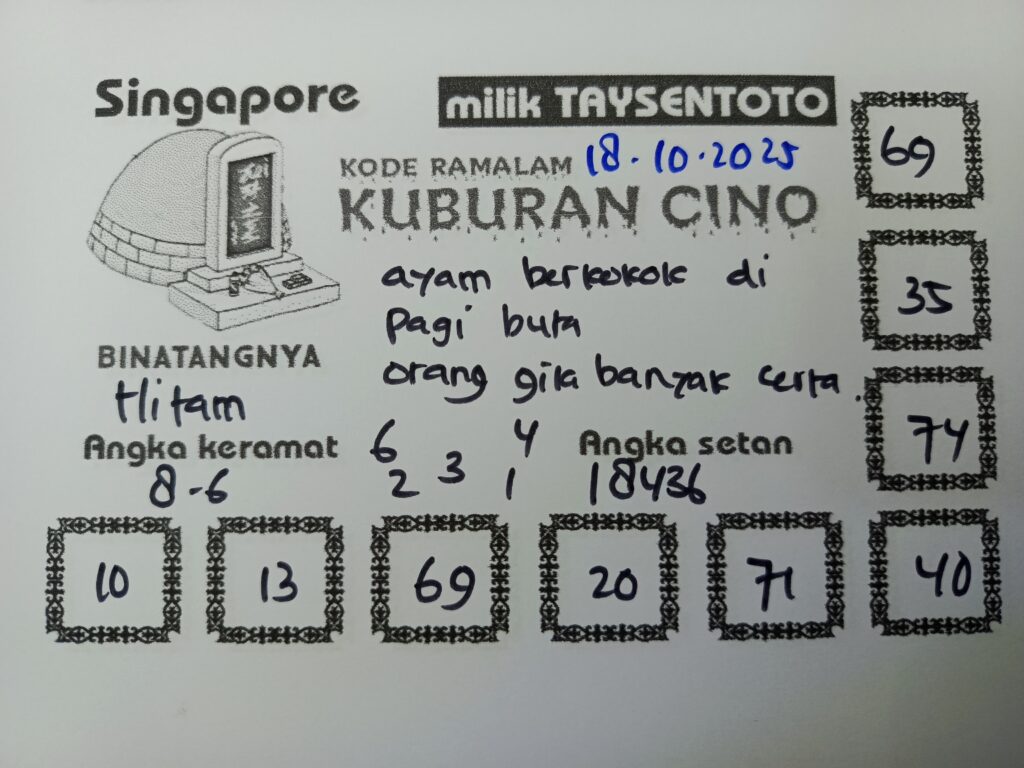 Singapore
milik TAYSENTOTO
KODE RAMALAM 18.10.2025
KUBURAN CINO
69
ayam berkokok di
pagi buta
35
orang gila banyak certa.
BINATANGNYA
Hitam
74
Angka keramat
8-6
6 4
2 3 1
Angka setan
18436
10 13 69 20 71 40